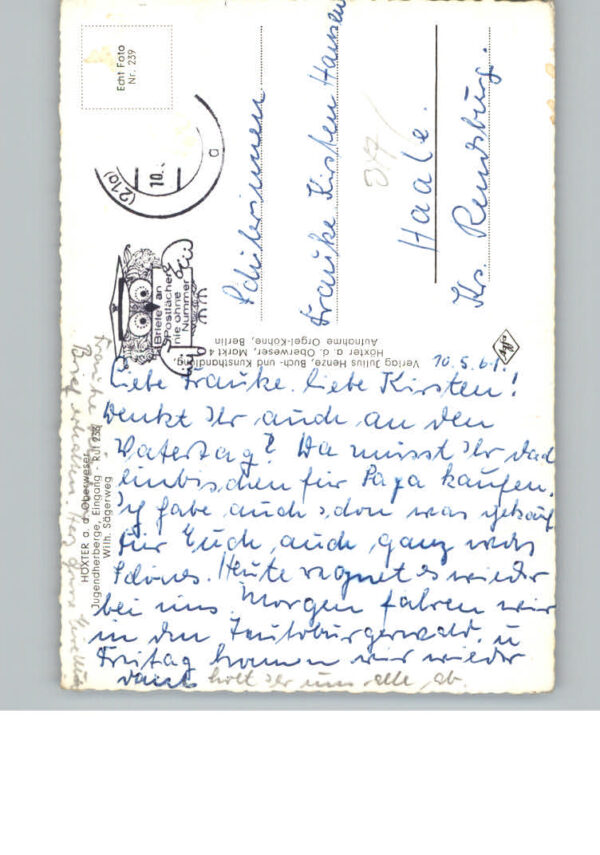 Echt Foto
Nr. 239
(21a)
10.
a
Briefe an
Postfächer
nie ohne
Nummer
Schülerinnen
Frauke Kirsten Hansen
Haale.
Krs. Rendsburg.
Verlag Julius Henze, Buch- und Kunsthandlung,
Höxter a. d. Oberweser, Markt 4
Aufnahme Orgel-Köhne, Berlin
Agfa
HÖXTER a. d. Oberweser
Jugendherberge, Eingang - Ruf 238
Wilh. Sägerweg
10.5.61.
Liebe Frauke. liebe Kirsten!
Denkt Ihr auch an den
Vatertag? Da müsst Ihr doch
einbischen für Papa kaufen.
Ich habe auch schon was gekauf
für Euch, auch ganz was
Schönes. Heute regnet es wieder
bei uns. Morgen fahren wir
in den Teutoburgerwald. u
Freitag kommen wir wieder
holt Ihr uns alle ab.
Frauke
Brief erhalten. Herz